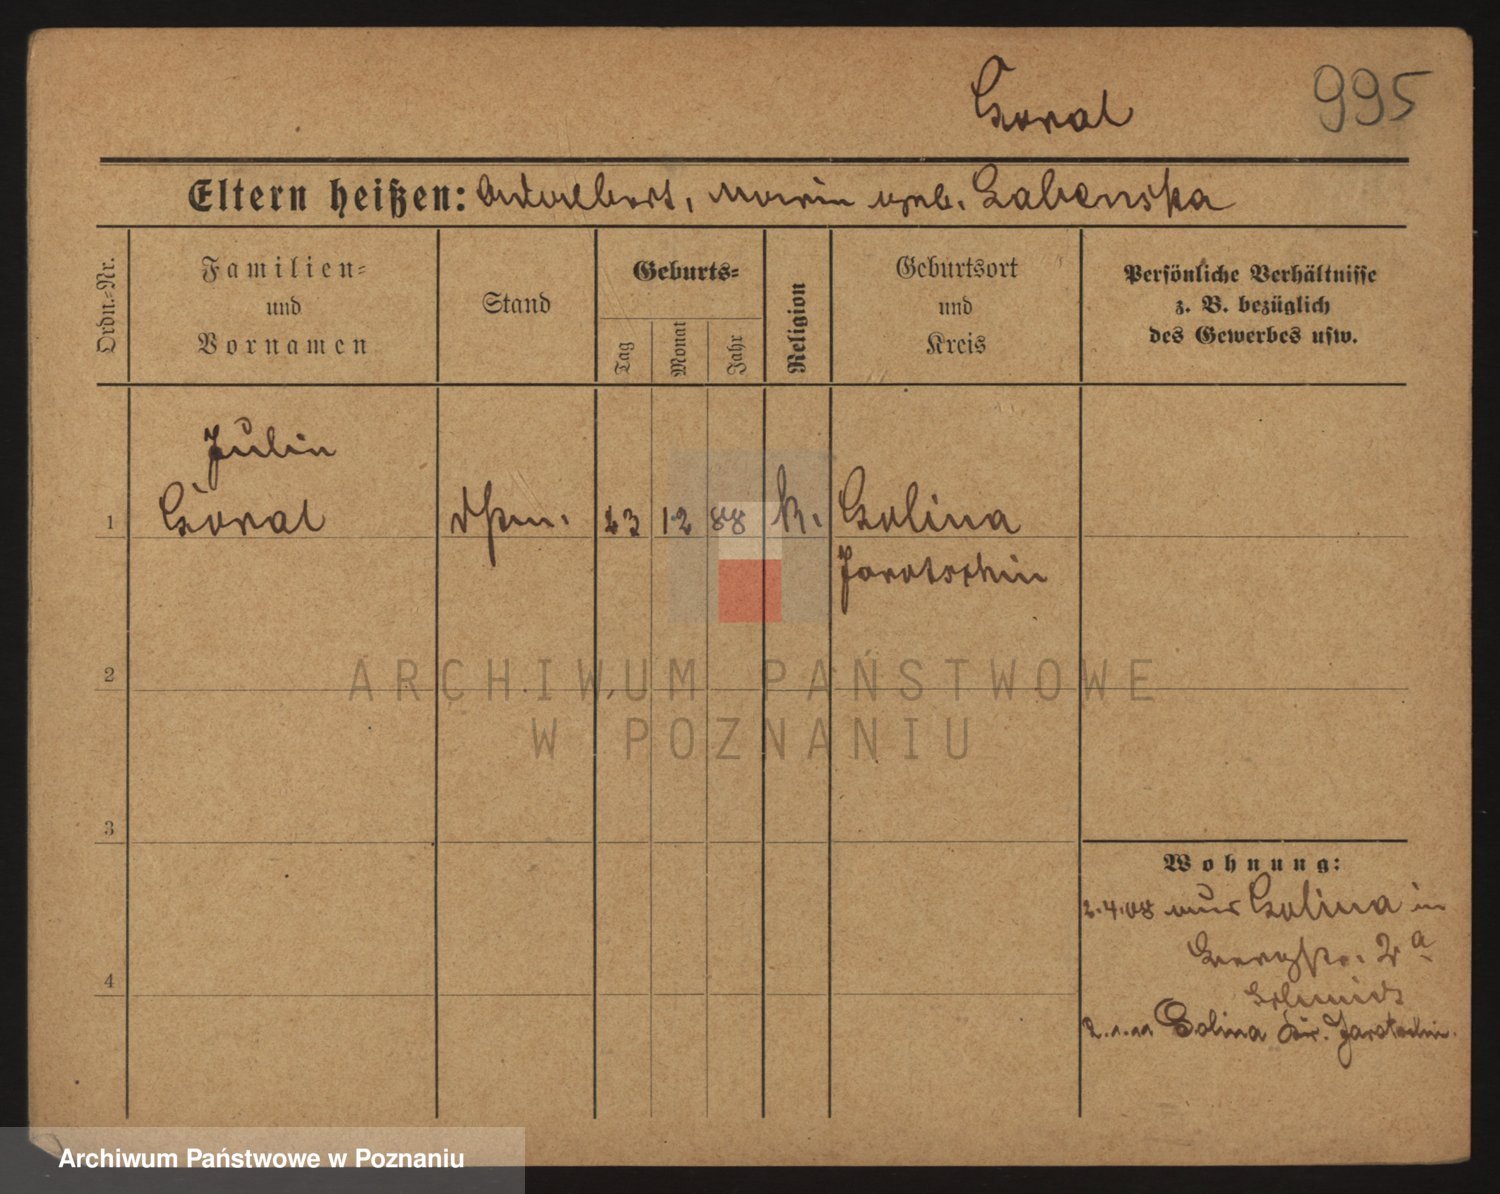 Goral 995
Eltern heißen: Adalbert, Maria geb. Labenska
Ordn.-Nr.
Familien-
und
Vornamen
Stand
Geburts-
Tag
Monat
Jahr
Religion
Geburtsort
und
Kreis
Persönliche Verhältnisse
z. B. bezüglich
des Gewerbes usw.
Julia
1 Goral 23 12 88 k. Golina
Jarotschin
2
ARCHIWUM PAŃSTWOWE
W POZNANIU
3
4
Wohnung:
2.4.08 aus Golina in
2a
2.1.11 Golina Kr. Jarotschin.
Archiwum Państwowe w Poznaniu